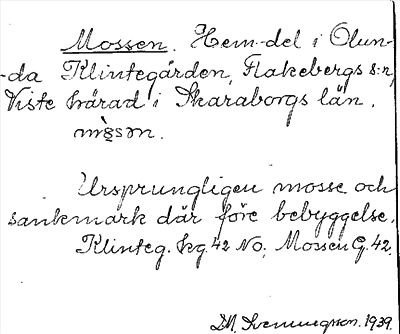 Mossen. Hem-del i Olun-
-da Klintegården, Flakebergs s:n,
Viste härad i Skaraborgs län.
Ursprungligen mosse och
sankmark där före bebyggelse.
Klinteg. hg. 42 No, Mossen G. 42.
D.M. Svenningsson. 1939.